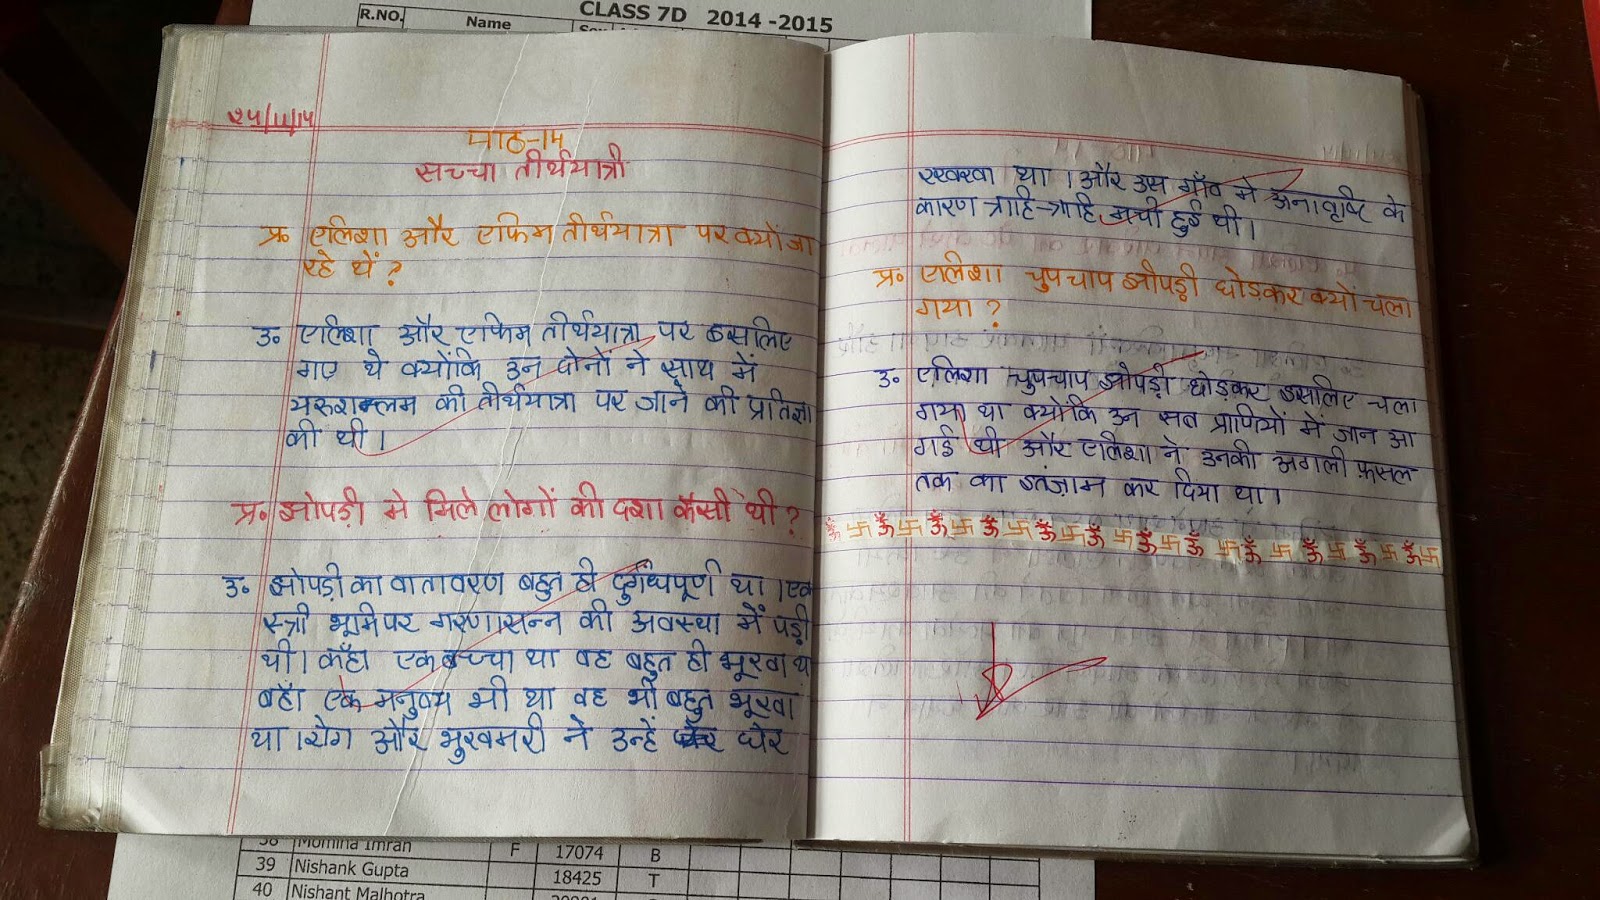 R.NO.
Name
CLASS 7D 2014 -2015
२५/११/१५
पाठ-१५
सच्चा तीर्थयात्री
प्र॰ एलिशा और एफिम तीर्थयात्रा पर क्यों जा
रहे थें ?
उ॰ एलिशा और एफिम तीर्थयात्रा पर इसलिए
गए थे क्योंकि उन दोनों ने साथ में
यरुशलम की तीर्थयात्रा पर जाने की प्रतिज्ञा
की थी।
प्र॰ झोपड़ी मे मिले लोगों की दशा कैसी थी ?
उ॰ झोपड़ी का वातावरण बहुत ही था । एक
स्त्री भूमि पर मरणासन्न की अवस्था में पड़ी
थी। एक बच्चा था वह बहुत ही भूखा था
वहाँ एक मनुष्य भी था वह भी बहुत भूखा
था ।रोग और भुखमरी ने उन्हें घेर
रखखा था ।और उस गाँव मे अनावृष्टि के
कारण त्राहि-त्राहि मची हुई थी।
प्र॰ एलिशा चुपचाप झोपड़ी छोड़कर क्यों चला
गया ?
उ॰ एलिशा चुपचाप झोपड़ी छोड़कर इसलिए चला
गया था क्योंकि उन सब प्राणियों में जान आ
गई थी और एलिशा ने उनकी अगली फ़सल
तक का इंतज़ाम कर दिया था।
ॐ 卐 ॐ 卐 ॐ 卐 ॐ 卐 ॐ 卐 ॐ 卐 ॐ 卐 ॐ 卐 ॐ 卐 ॐ 卐 ॐ 卐
38 Momina Imran F 17074 B
39 Nishank Gupta 18425 T
40 Nishant Malhotra